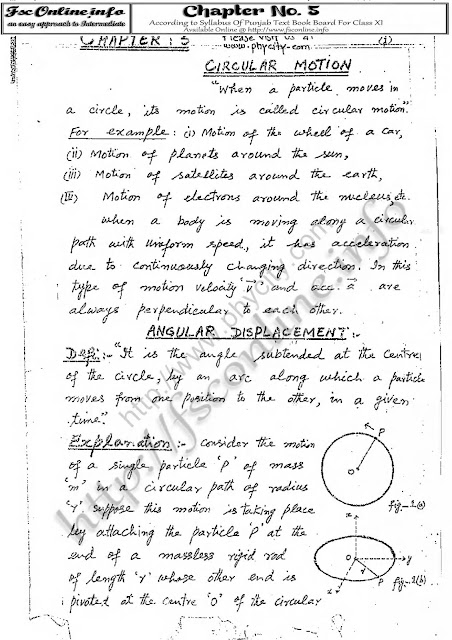 Fsc Online.info
an easy approach to Intermediate
Chapter No. 5
According to Syllabus Of Punjab Text Book Board For Class XI
Available Online @ http://www.fsconline.info
CHAPTER : 5
Please visit us at
www.phycity.com
(1)
CIRCULAR MOTION
"When a particle moves in
a circle, its motion is called circular motion."
For example: (i) Motion of the wheel of a car,
(ii) Motion of planets around the sun,
(iii) Motion of satellites around the earth,
(iiii) Motion of electrons around the nucleus etc.
When a body is moving along a circular
path with uniform speed, it has acceleration
due to continuously changing direction. In this
type of motion velocity 'v' and acc. a are
always perpendicular to each other.
ANGULAR DISPLACEMENT :-
Def:- "It is the angle subtended at the centre
of the circle, by an arc along which a particle
moves from one position to the other, in a given
time".
Explanation :- Consider the motion
of a single particle 'P' of mass
'm' in a circular path of radius
'r' suppose this motion is taking place
by attaching the particle 'P' at the
end of a massless rigid rod
of length 'r' whose other end is
pivoted at the centre 'O' of the circular
P
O
fig-1(a)
z
O
y
r
P
x
fig-2(b)
http://www.phycity.com
http://fsconline.info